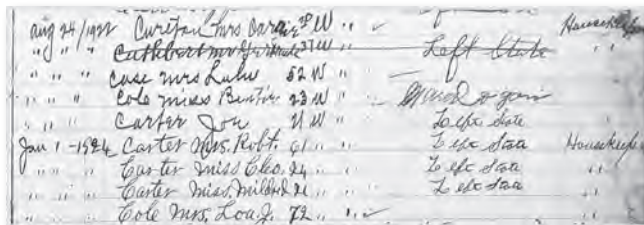 Aug 24/1922 Cureton Mrs Cora W " Housekeeper
" " " Cuthbert Mrs Gertrude 37 W " Left State "
" " " Case Mrs Lulu 52 W "
" " " Cole Miss Bertie 23 W "
" " " Carter Jon 21 W " Left State
Jan 1-1924 Carter Mrs. Robt. 61 " " Left State Housekeeper
" " " Carter Miss Cleo. 24 " " Left State "
" " " Carter Miss. Mildred 21 " " Left State "
" " " Cole Mrs. Lou J. 72 " " "